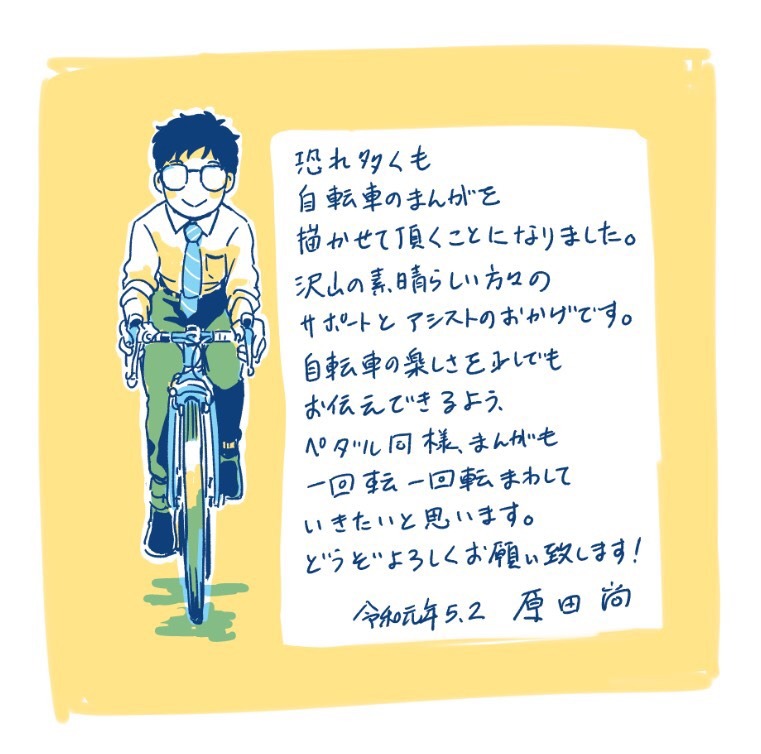 恐れ多くも
自転車のまんがを
描かせて頂くことになりました。
沢山の素晴らしい方々の
サポートとアシストのおかげです。
自転車の楽しさを少しでも
お伝えできるよう、
ペダル同様、まんがも
一回転一回転まわして
いきたいと思います。
どうぞよろしくお願い致します!
令和元年5.2 原田尚